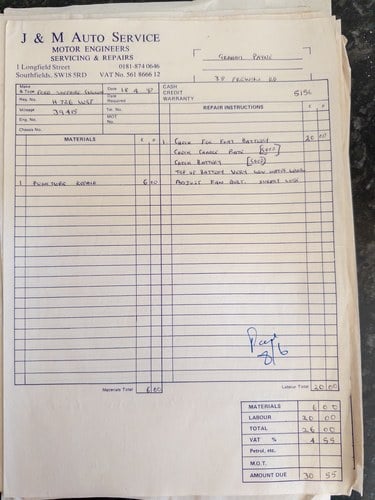 J & M AUTO SERVICE
MOTOR ENGINEERS
SERVICING & REPAIRS
1 Longfield Street
Southfields, SW18 5RD
0181-874 0646
VAT No. 561 8666 12
GRAHAM PAYNE
38 RD
Make & Type FORD
Date 18 4
CASH
CREDIT
WARRANTY
5156
Reg. No. H 726 WGF
Date Required
REPAIR INSTRUCTIONS £ p
Mileage 39415
Tel. No.
Eng. No.
MOT No.
Chassis No.
MATERIALS £ p
1 CHECK FOR FLAT BATTERY 20 00
CHECK CHARGE RATE GOOD
CHECK BATTERY GOOD
TOP UP BATTERY VERY LOW WATER LEVEL
1 PUNCTURE REPAIR 6 00
ADJUST FAN BELT
Paid
8/6
Materials Total 6 00
Labour Total 20 00
MATERIALS 6 00
LABOUR 20 00
TOTAL 26 00
VAT % 4 55
Petrol, etc.
M.O.T.
AMOUNT DUE 30 55